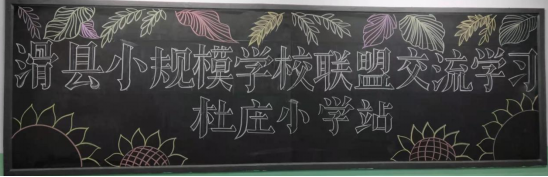 滑县小规模学校联盟交流学习
杜庄小学站